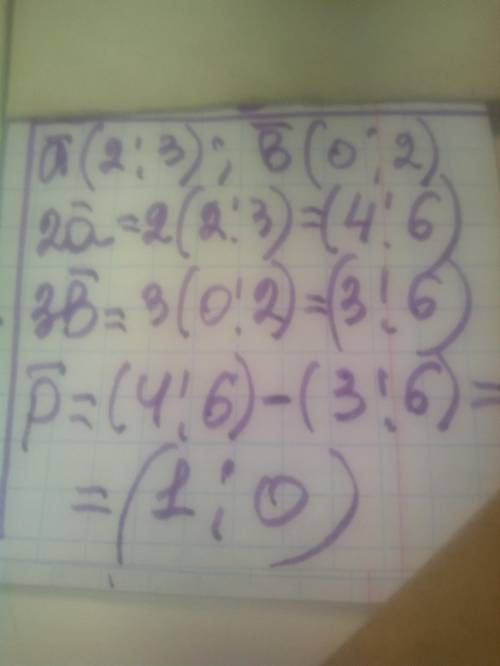 ā(2;3); b̄(0;2)
2ā=2(2;3)=(4;6)
3b̄=3(0;2)=(3;6)
p̄=(4;6)-(3;6)=
=(1;0)